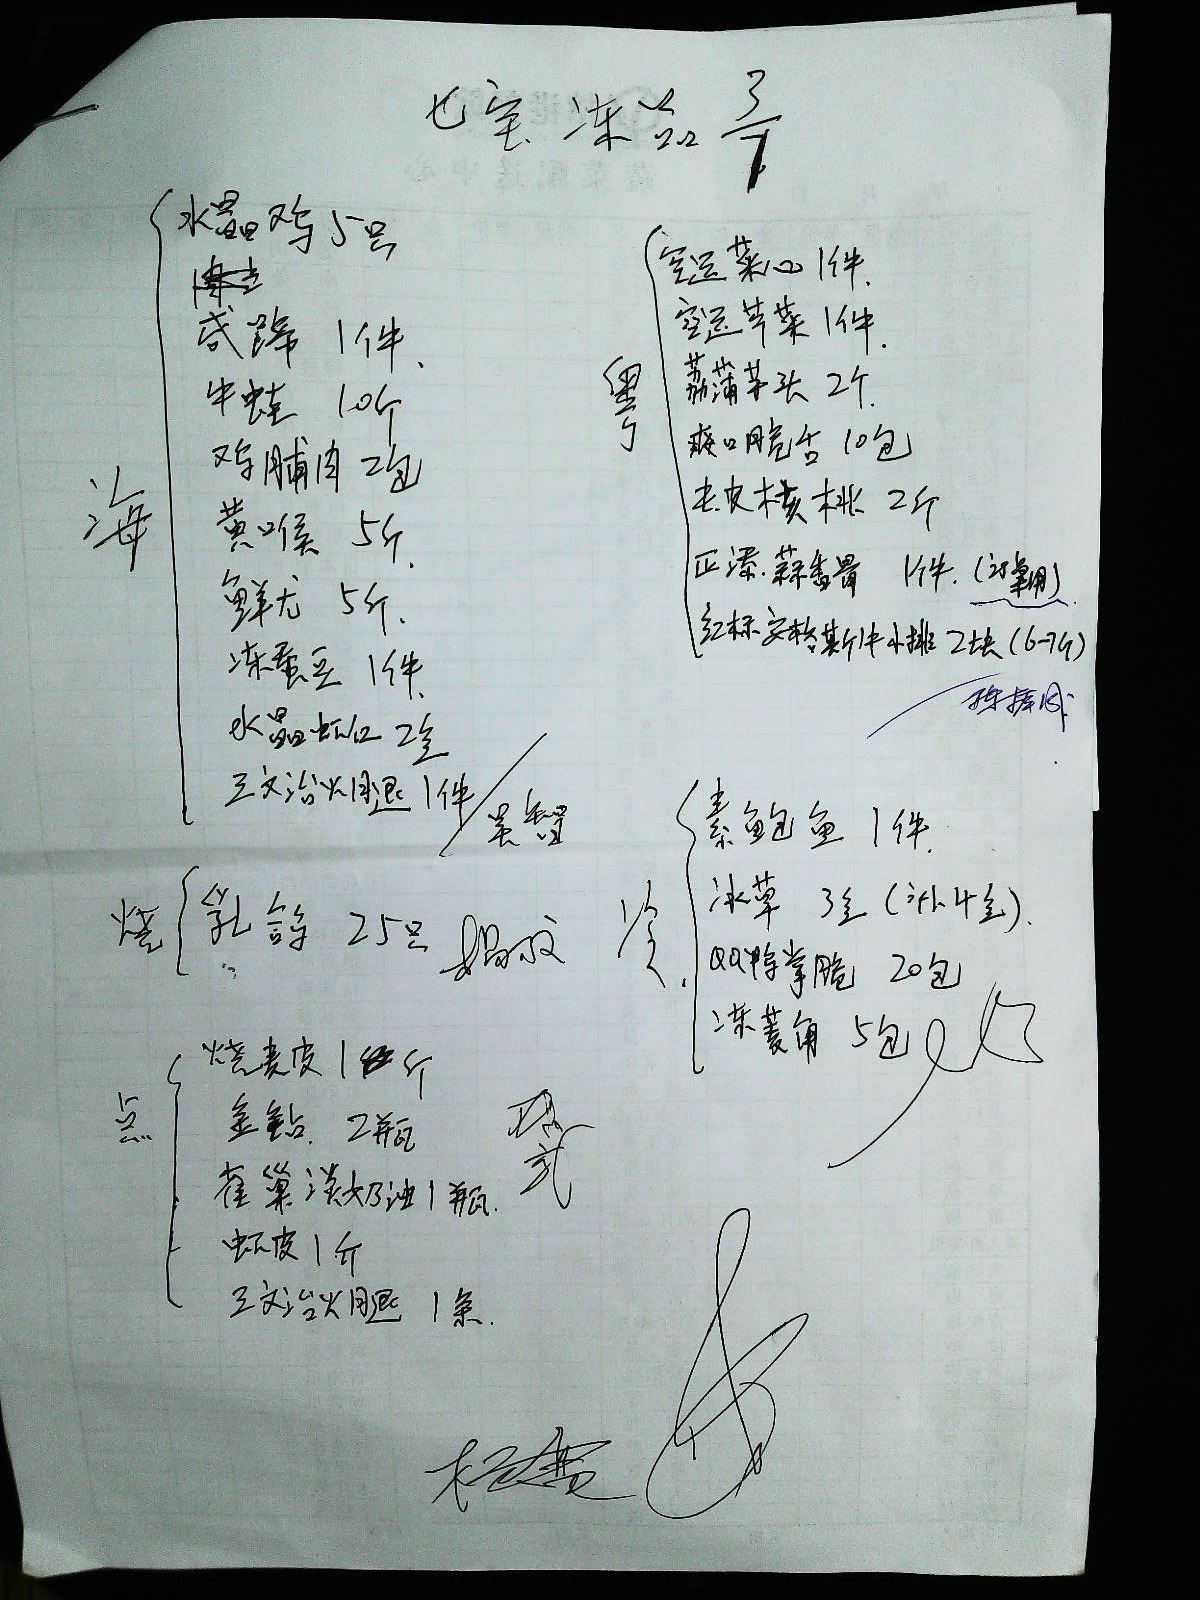 七宝冻品 3/7
海
水晶鸡 5只
咸蹄 1件
牛蛙 10斤
鸡脯肉 2包
黄喉 5斤
鲜尤 5斤
冻蚕豆 1件
水晶虾仁 2盒
三文治火腿 1件
吴智
烧
乳鸽 25只
点
烧麦皮 1斤
金钻 2瓶
雀巢淡奶油 1瓶
虾皮 1斤
三文治火腿 1条
粤
空运菜心 1件
空运芥菜 1件
荔蒲芋头 2个
爽口脆舌 10包
去皮核桃 2斤
正漆蒜香骨 1件
红标安格斯牛小排 2块(6-7斤)
冷
素鲍鱼 1件
冰草 3盒(另外4盒)
QQ鸭掌脆 20包
冻菱角 5包